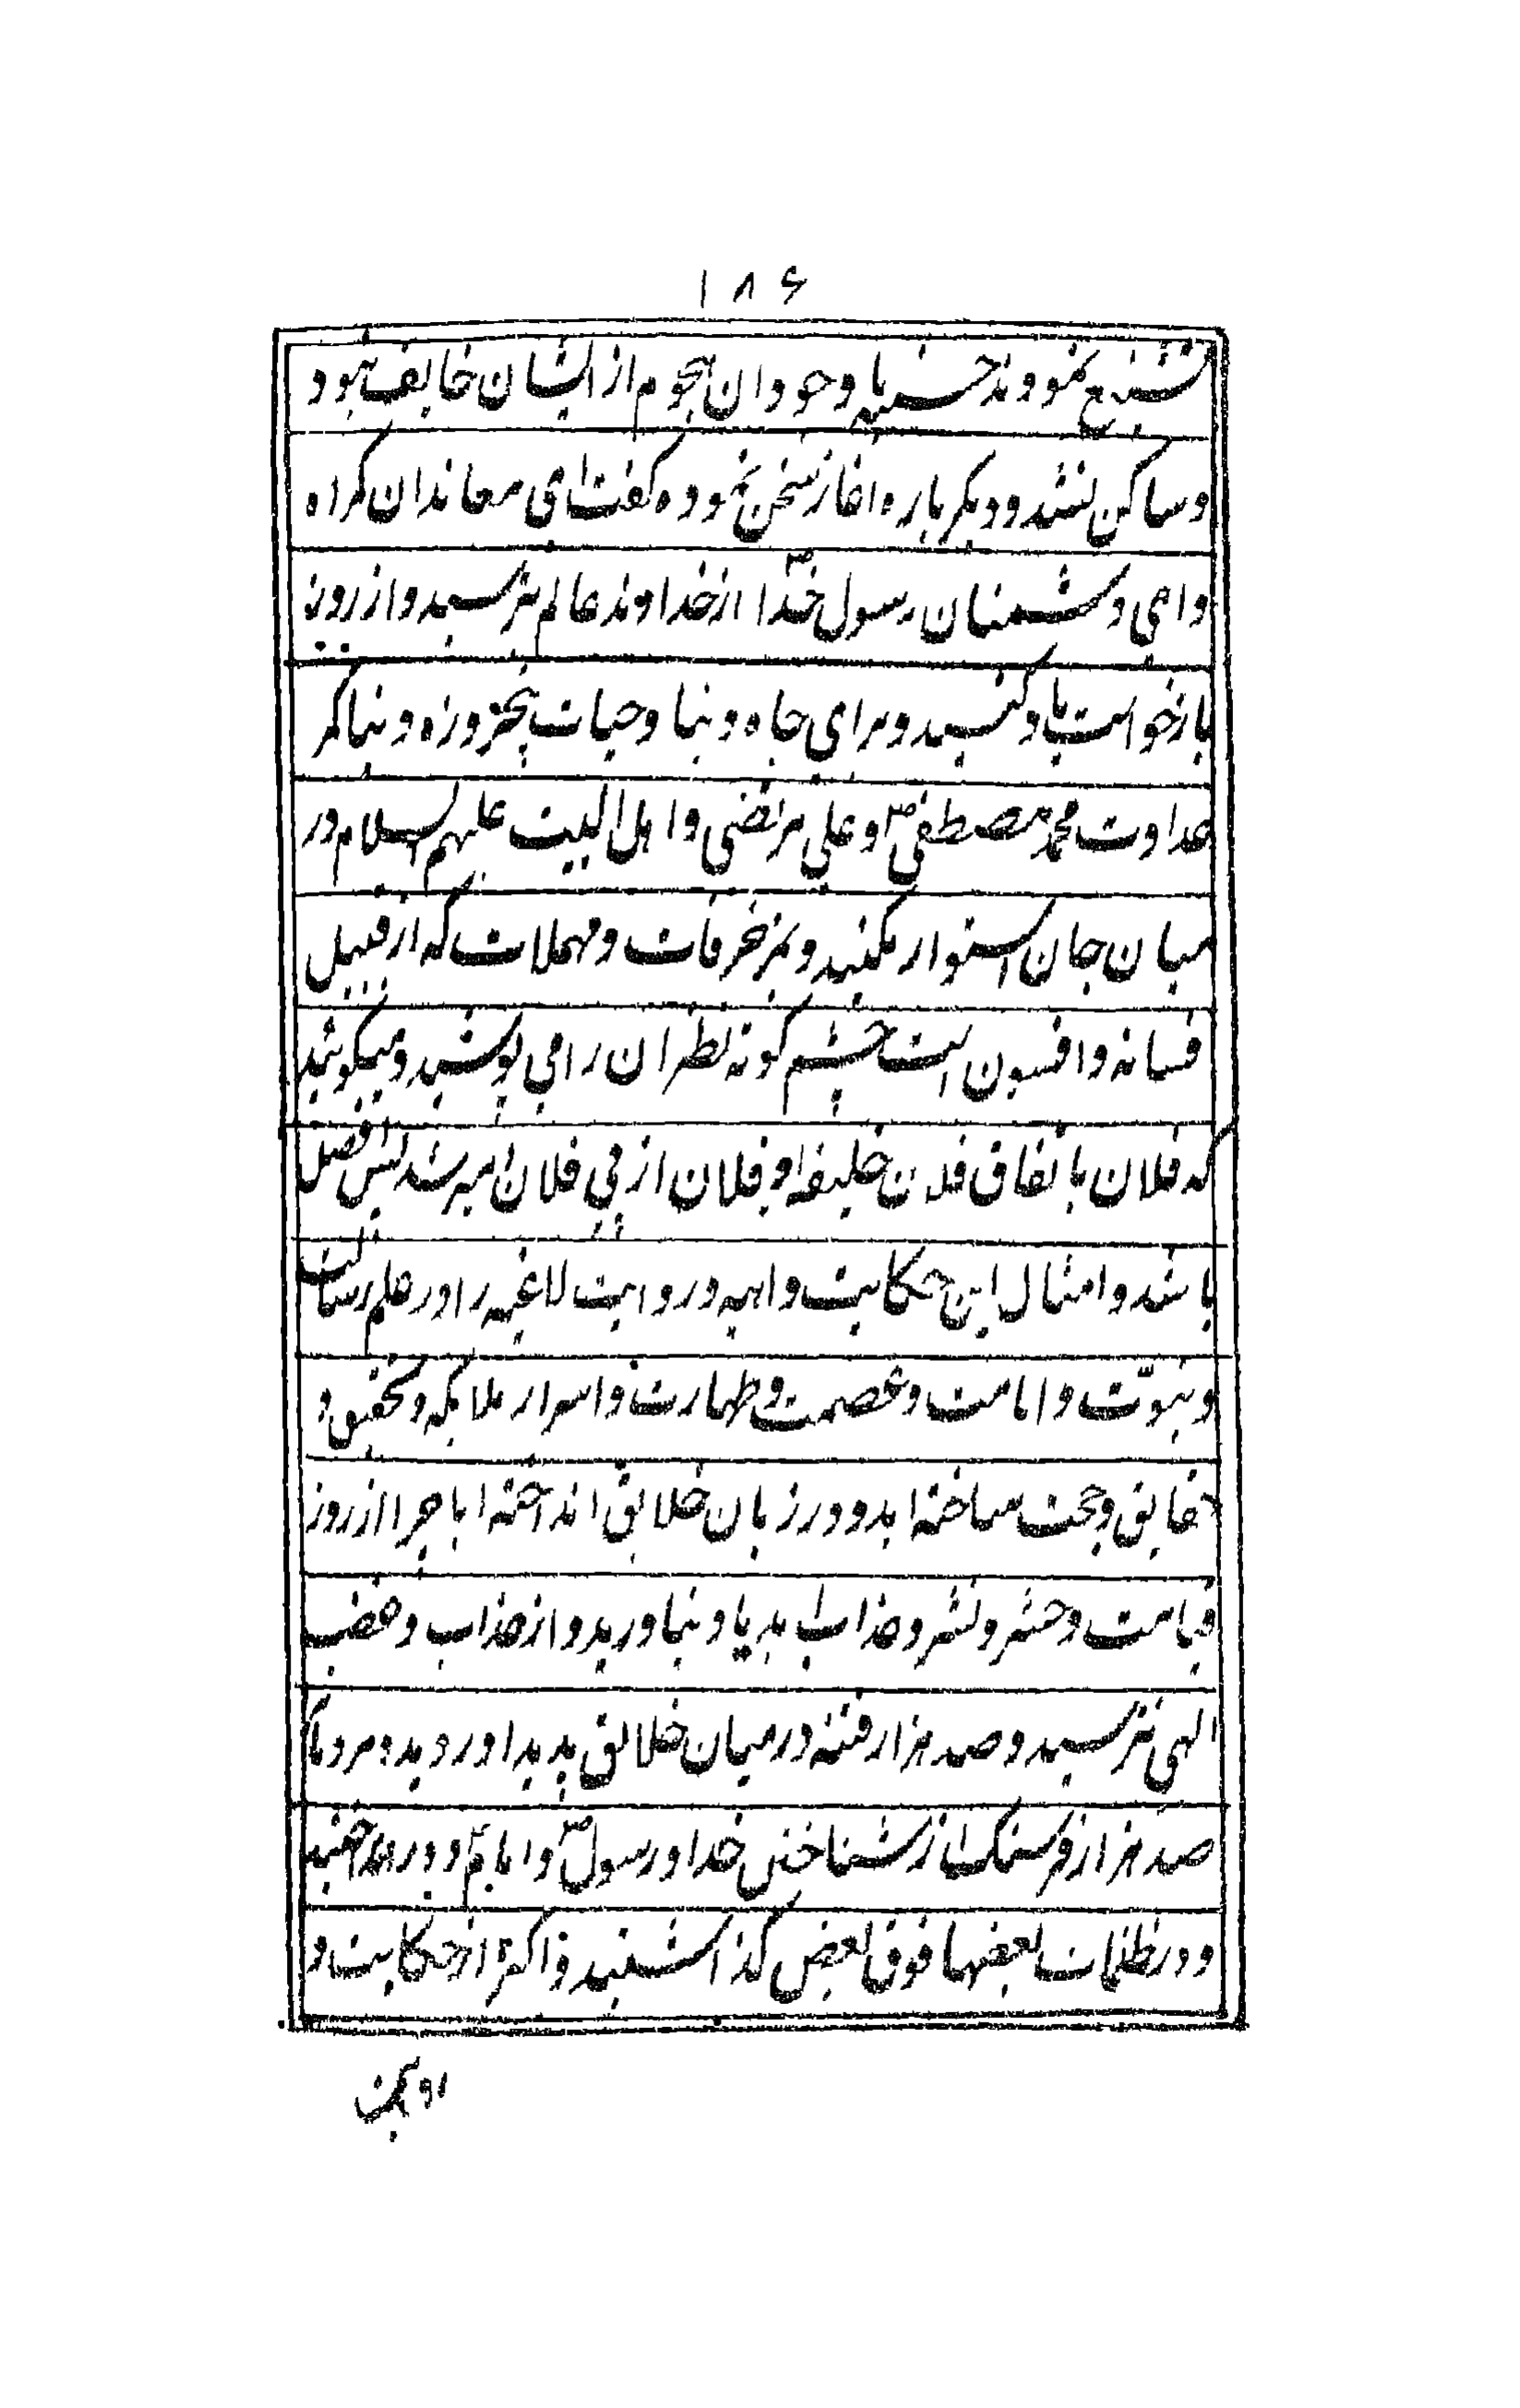 ۱۸۶
تشنیع نمودند حسنیه با وجود ان هجوم از ایشان خایف نبود
و ساکن نشد و دیکر باره اغاز سخن نموده کفت ای معاندان کمراه
و ای دشمنان رسول خدا ص از خداوند عالم بترسید و از روز
بازخواست یاد کنید و برای جاه دنیا و حیات پنجروزه دنیا کمر
عداوت محمد مصطفی ص و علی مرتضی و اهل البیت علیهم السلام در
میان جان استوار مکنید و بمزخرفات و مهملات که از قبیل
فسانه و افسون است چشم کوته نظران را می پوشید و میکوئید
که فلان باتفاق فلان خلیفه و فلان از پی فلان امیر شد پس افضل
باشد و امثال این حکایت واهیه و روایت لاغیه را در علم رسالت
و نبوّت و امامت و عصمت و طهارت و اسرار ملایکه و تحقیق و
حقایق و حجت ساخته اید و در زبان خلایق انداخته ایا چرا از روز
قیامت و حشر و نشر و عذاب ابد یاد نیاورید و از عذاب و غضب
الهی نترسید و صد هزار فتنه در میان خلایق پدید اوردید و مردم را
صد هزار فرسنک از شناختن خدا و رسول ص و امام ع دور انداختید
و در ظلمات بعضها فوق بعض کذاشتید و اکر از حکایت و
روایت